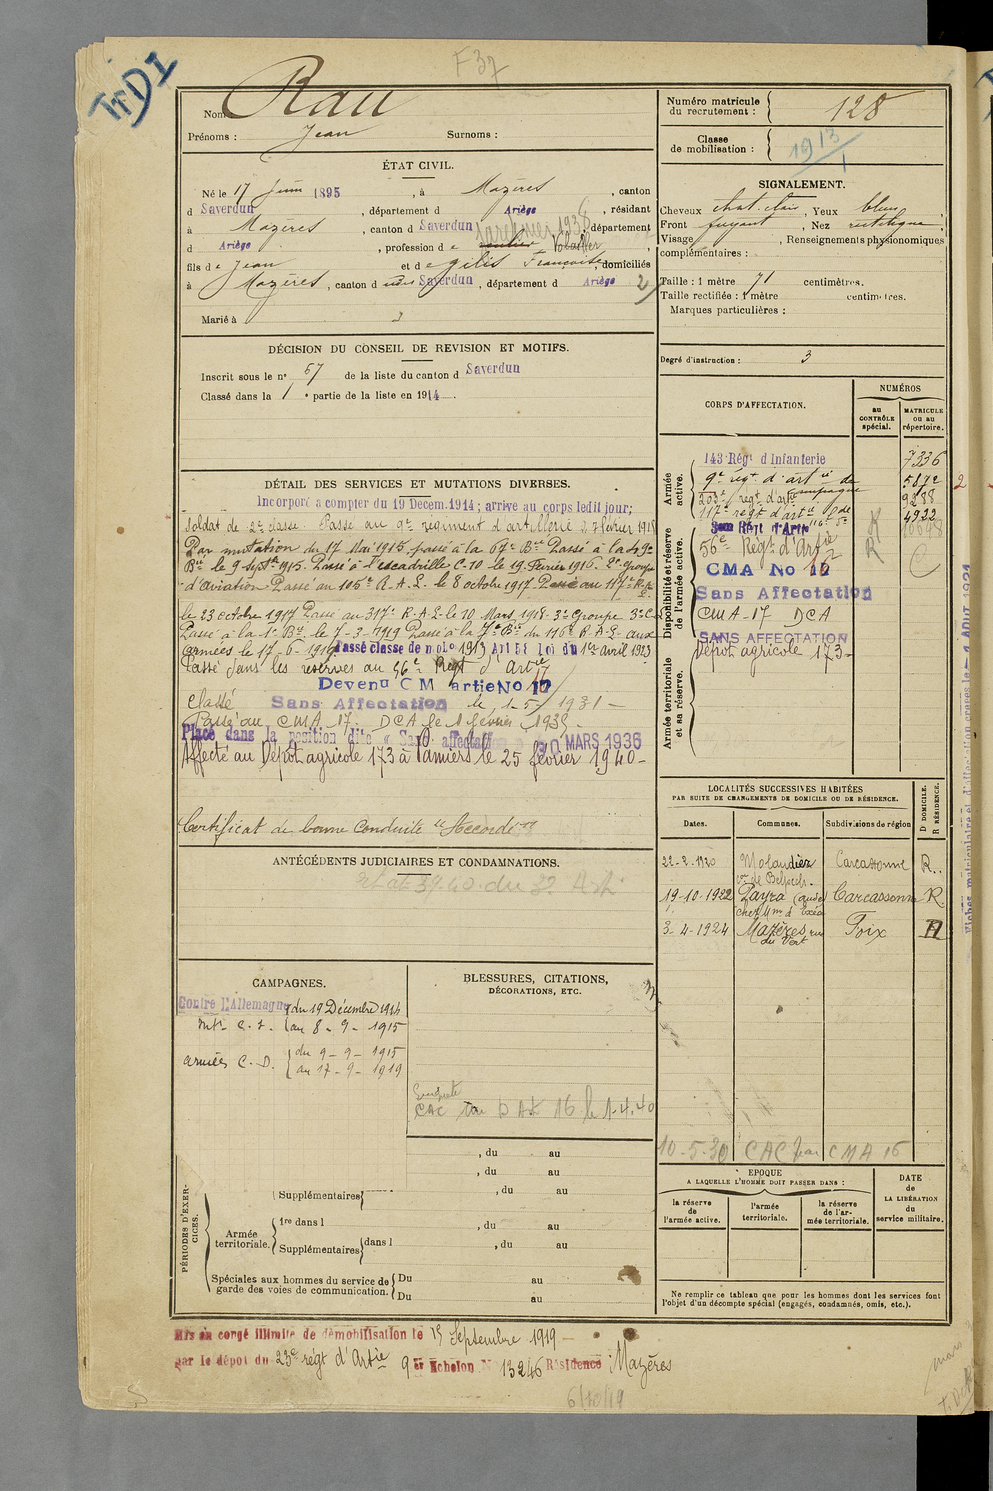 F37
TrDI
Nom Rau
Prénoms : Jean Surnoms :
ÉTAT CIVIL.
Né le 17 Juin 1895, à Mazères, canton
d Saverdun, département d Ariège, résidant
à Mazères, canton d Saverdun, département
d Ariège, profession d e Volailler
fils d e Jean et d e Gilis Françoise, domiciliés
à Mazères, canton d Saverdun, département d Ariège
Marié à
DÉCISION DU CONSEIL DE REVISION ET MOTIFS.
Inscrit sous le n° 67 de la liste du canton d Saverdun
Classé dans la 1 e partie de la liste en 1914.
DÉTAIL DES SERVICES ET MUTATIONS DIVERSES.
Incorporé a compter du 19 Décem. 1914; arrive au corps ledit jour;
Soldat de 2e classe. Passé au 9e régiment d'artillerie le 7 février 1915
Par mutation du 17 Mai 1915 passé à la 67e Bie Passé à la 49e
Bie le 9 Septe 1915. Passé à l'escadrille C-10 le 19 Février 1916. 2e Groupe
d'Aviation Passé au 105e R.A.L. le 8 octobre 1917 Passé au 117e R.A.L.
le 23 octobre 1917 Passé au 317e R.A.L. le 10 Mars 1918 - 3e Groupe 3e C.
Passé à la 1e Bie le 7-3-1919 Passé à la 7e Bie du 116e R.A.L. aux
armées le 17-6-1919 Passé classe de mobo 1913 Art 58 Loi du 1er Avril 1923
Passé dans les réserves au 56e Régt d'Artie
Devenu C M artie No 17
Classé Sans Affectation le 1-5-1931
Passé au CMA 17. DCA le 1 février 1938
Placé dans la position dite « Sans affectation » 30 MARS 1936
Affecté au Dépôt agricole 173 à Pamiers le 25 février 1940
Certificat de bonne Conduite "Accordé"
ANTÉCÉDENTS JUDICIAIRES ET CONDAMNATIONS.
CAMPAGNES.
Contre l'Allemagne du 19 Décembre 1914
au 8-9-1915
armées C.D. du 9-9-1915
au 17-9-1919
BLESSURES, CITATIONS,
DÉCORATIONS, ETC.
CAC DAT 16 le 1.4.40
, du au
, du au
PÉRIODES D'EXERCICES.
Supplémentaires , du au
Armée territoriale. 1re dans l , du au
Supplémentaires dans l , du au
Spéciales aux hommes du service de
garde des voies de communication. Du au
Du au
Mis en congé illimité de démobilisation le 15 Septembre 1919
par le dépôt du 23e régt d'Artie 9e Echelon N° 13246 Résidence Mazères
6/10/19
Numéro matricule
du recrutement : 128
Classe
de mobilisation : 1913
1
SIGNALEMENT.
Cheveux chat. clair, Yeux bleus
Front fuyant, Nez rectiligne
Visage , Renseignements physionomiques
complémentaires :
Taille : 1 mètre 71 centimètres.
Taille rectifiée : 1 mètre centimètres.
Marques particulières :
Degré d'instruction : 3
CORPS D'AFFECTATION. NUMÉROS
au CONTRÔLE spécial. MATRICULE ou au répertoire.
Armée active.
143e Régt d'Infanterie 7336
9e régt d'artie de campagne 5872
203e régt d'artie 9288
117e régt d'artie 4932
Disponibilité et réserve de l'armée active.
56e Régt d'Artie
CMA No 16
Sans Affectation
CMA 17 DCA
SANS AFFECTATION
Dépôt agricole 173
Armée territoriale et sa réserve.
LOCALITÉS SUCCESSIVES HABITÉES
PAR SUITE DE CHANGEMENTS DE DOMICILE OU DE RÉSIDENCE.
Dates. Communes. Subdivisions de région D. DOMICILE. R. RÉSIDENCE.
22-2-1920 Molandier Carcassonne R.
cn de Belpech.
19-10-1922 Payra (Aude) Carcassonne R.
3-4-1924 Mazères rue Foix R
du Vert
10-5-30 CAC par CMA 16
EPOQUE
A LAQUELLE L'HOMME DOIT PASSER DANS :
la réserve de l'armée active. l'armée territoriale. la réserve de l'armée territoriale.
DATE de LA LIBÉRATION du service militaire.
Ne remplir ce tableau que pour les hommes dont les services font
l'objet d'un décompte spécial (engagés, condamnés, omis, etc.).